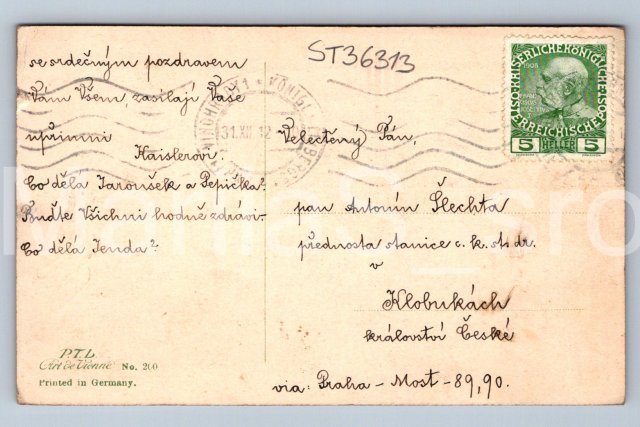 ST36313
se srdečným pozdravem
Vám Všem zasílají Vaše
upřimní
Kaislerovi.
Co děla Jaroušek a Pepička?
Buďte Všichni hodně zdrávi.
Co dělá Jenda?
P.T.L.
Art de Vienne No. 200
Printed in Germany.
31.XII.12
1908
5 HELLER 5
Velectěný Pán,
pan Antonín Šlechta
přednosta stanice c. k. st. dr.
v
Klobukách
království České
via: Praha - Most - 89,90.